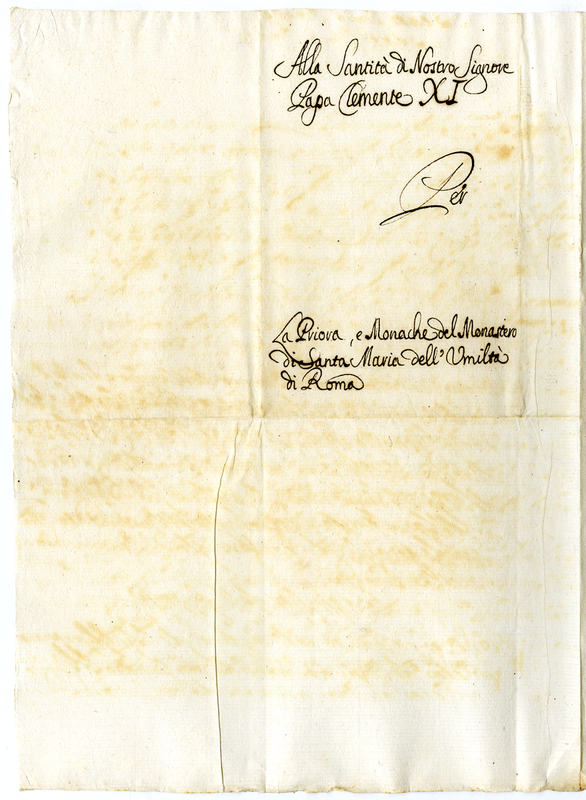 Alla Santità di Nostro Signore
Papa Clemente XI
Per
La Priora, e Monache del Monastero
di Santa Maria dell' Umiltà
di Roma